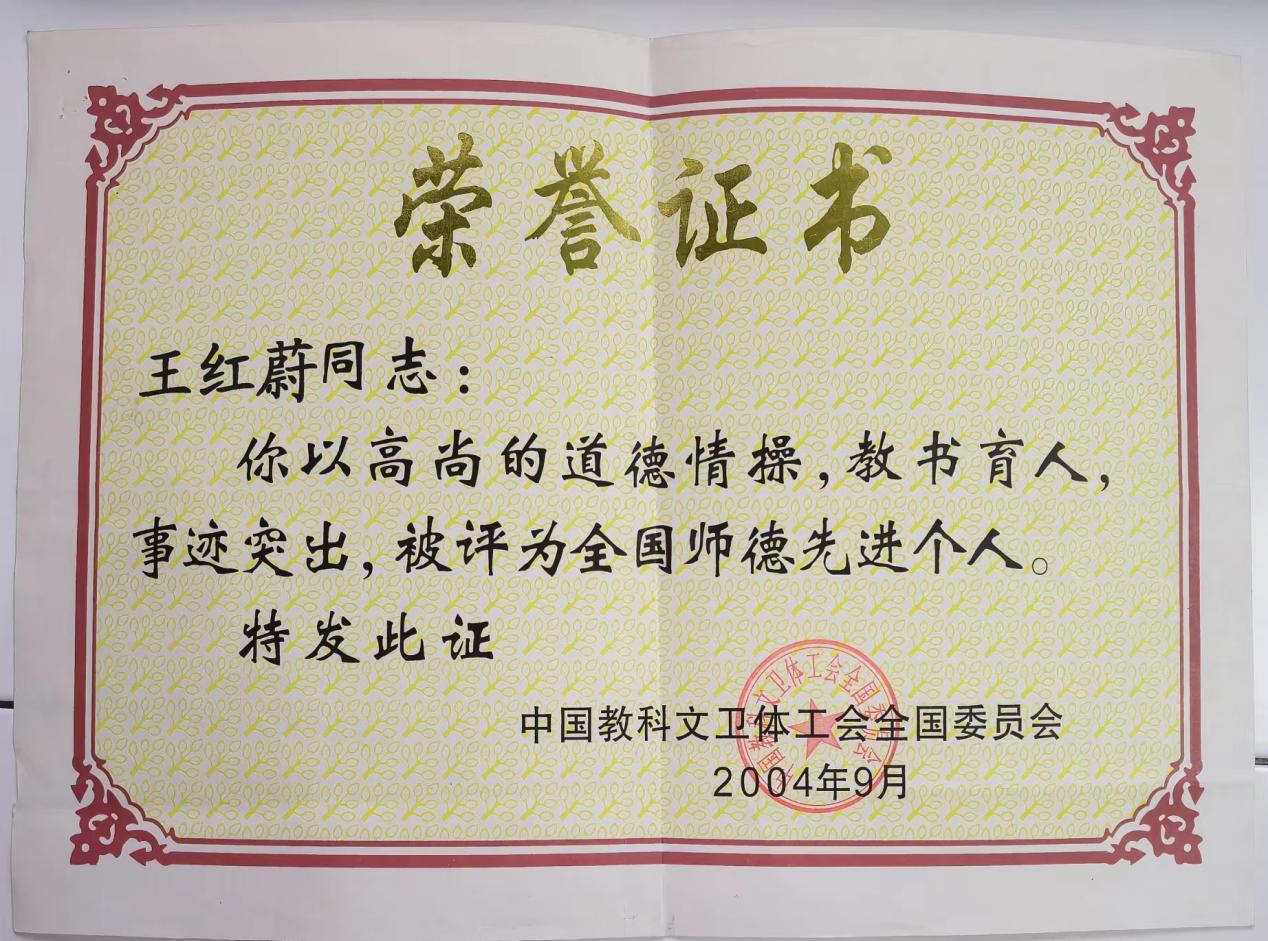 荣誉证书
王红蔚同志：
你以高尚的道德情操，教书育人，
事迹突出，被评为全国师德先进个人。
特发此证
中国教科文卫体工会全国委员会
2004年9月
中国教科文卫体工会全国委员会